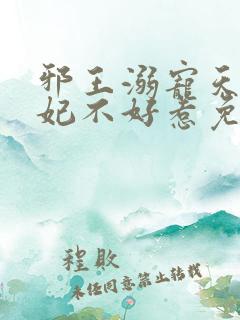 邪王溺宠天
妃不好惹免
程败
未经同意禁止转载